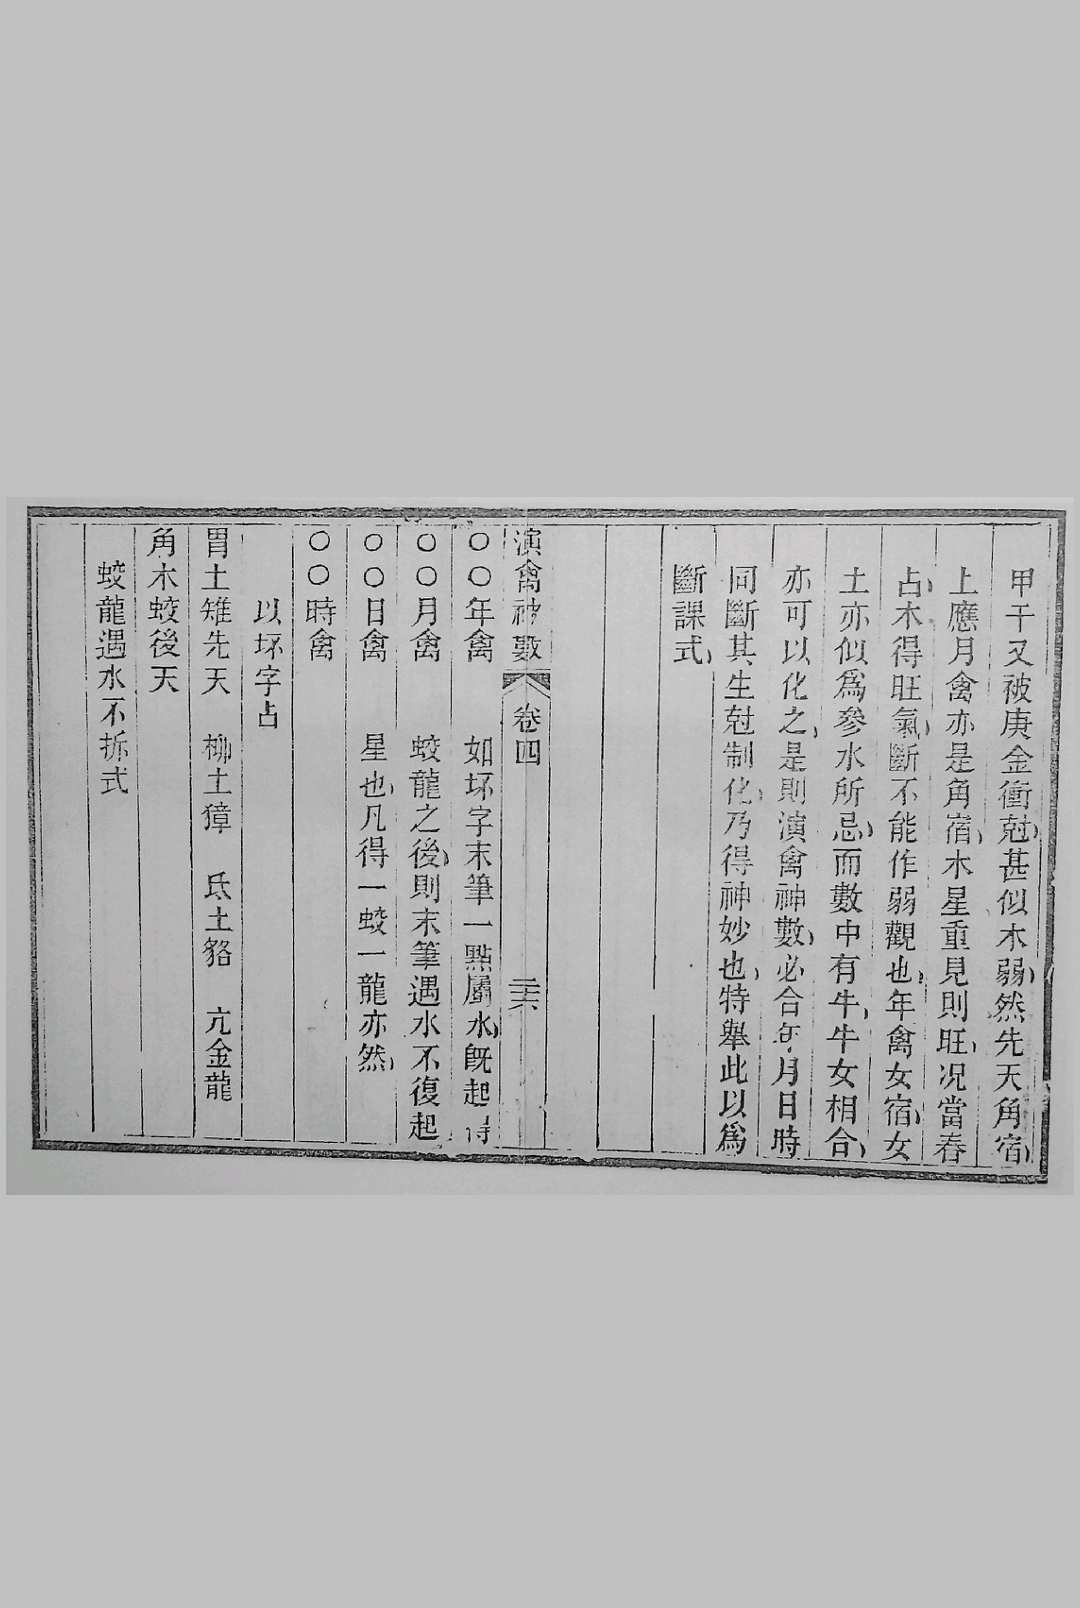 甲干又被庚金衝尅甚似木弱然先天角宿
上應月禽亦是角宿木星重見則旺况當春
占木得旺氣斷不能作弱觀也年禽女宿女
土亦似爲參水所忌而數中有牛牛女相合
亦可以化之是則演禽神數必合年月日時
同斷其生尅制化乃得神妙也特舉此以爲
斷課式
演禽神數 卷四 三六
〇〇年禽 如坏字末筆一點屬水既起得
〇〇月禽 蛟龍之後則末筆遇水不復起
〇〇日禽 星也凡得一蛟一龍亦然
〇〇時禽
以坏字占
胃土雉先天 柳土獐 氐土貉 亢金龍
角木蛟後天
蛟龍遇水不拆式